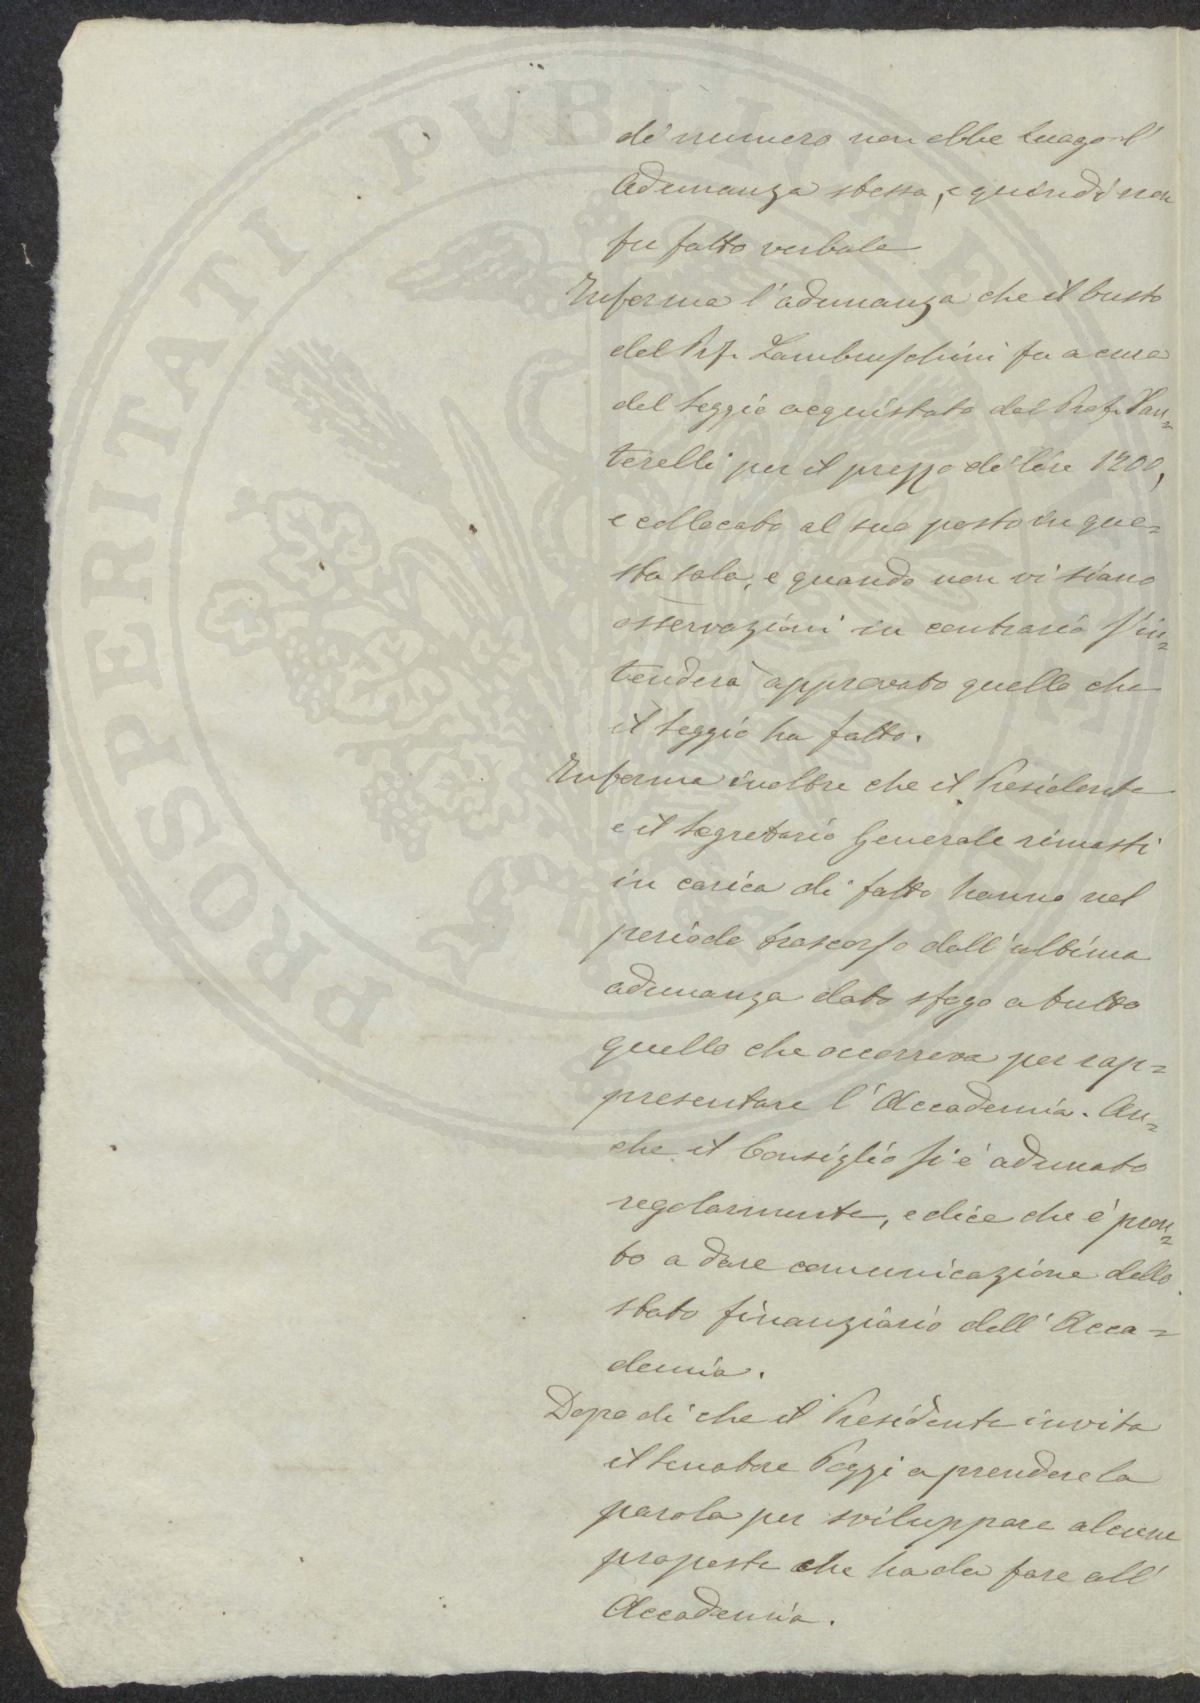 di numero non ebbe luogo l'
Adunanza stessa, e quindi non
fu fatto verbale
Informa l'adunanza che il busto
del Prof. Lambruschini fu a cura
del Seggio acquistato dal Prof. Pan=
terelli per il prezzo di lire 1200,
e collocato al suo posto in que=
sta sala, e quando non vi siano
osservazioni in contrario s'in=
tenderà approvato quello che
il Seggio ha fatto.
Informa inoltre che il Presidente
e il Segretario Generale rimasti
in carica di fatto hanno nel
periodo trascorso dall'ultima
adunanza dato sfogo a tutto
quello che occorreva per rap=
presentare l'Accademia. An=
che il Consiglio si è adunato
regolarmente, e dice che è pron=
to a dare comunicazione dello
stato finanziario dell'Acca=
demia.
Dopo di che il Presidente invita
il Senatore Poggi a prendere la
parola per sviluppare alcune
proposte che ha da fare all'
Accademia.
PROSPERITATI PVBLICAE AVGENDAE